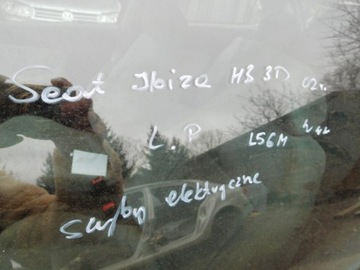 Seat Ibiza HB 3D 02r.
L.P L56M
szyby elektryczne